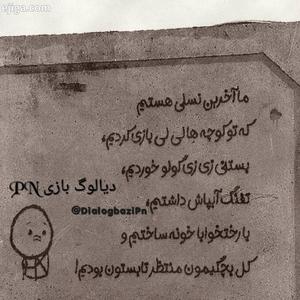 ejiga.com
ما آخرین نسلی هستیم
که تو کوچه ها لی لی بازی کردیم،
بستنی زی زی گولو خوردیم،
تفنگ آبپاش داشتیم،
با رختخوابا خونه ساختیم و
کل بچگیمون منتظر تابستون بودیم!
دیالوگ بازی PN
@DialogbaziPn